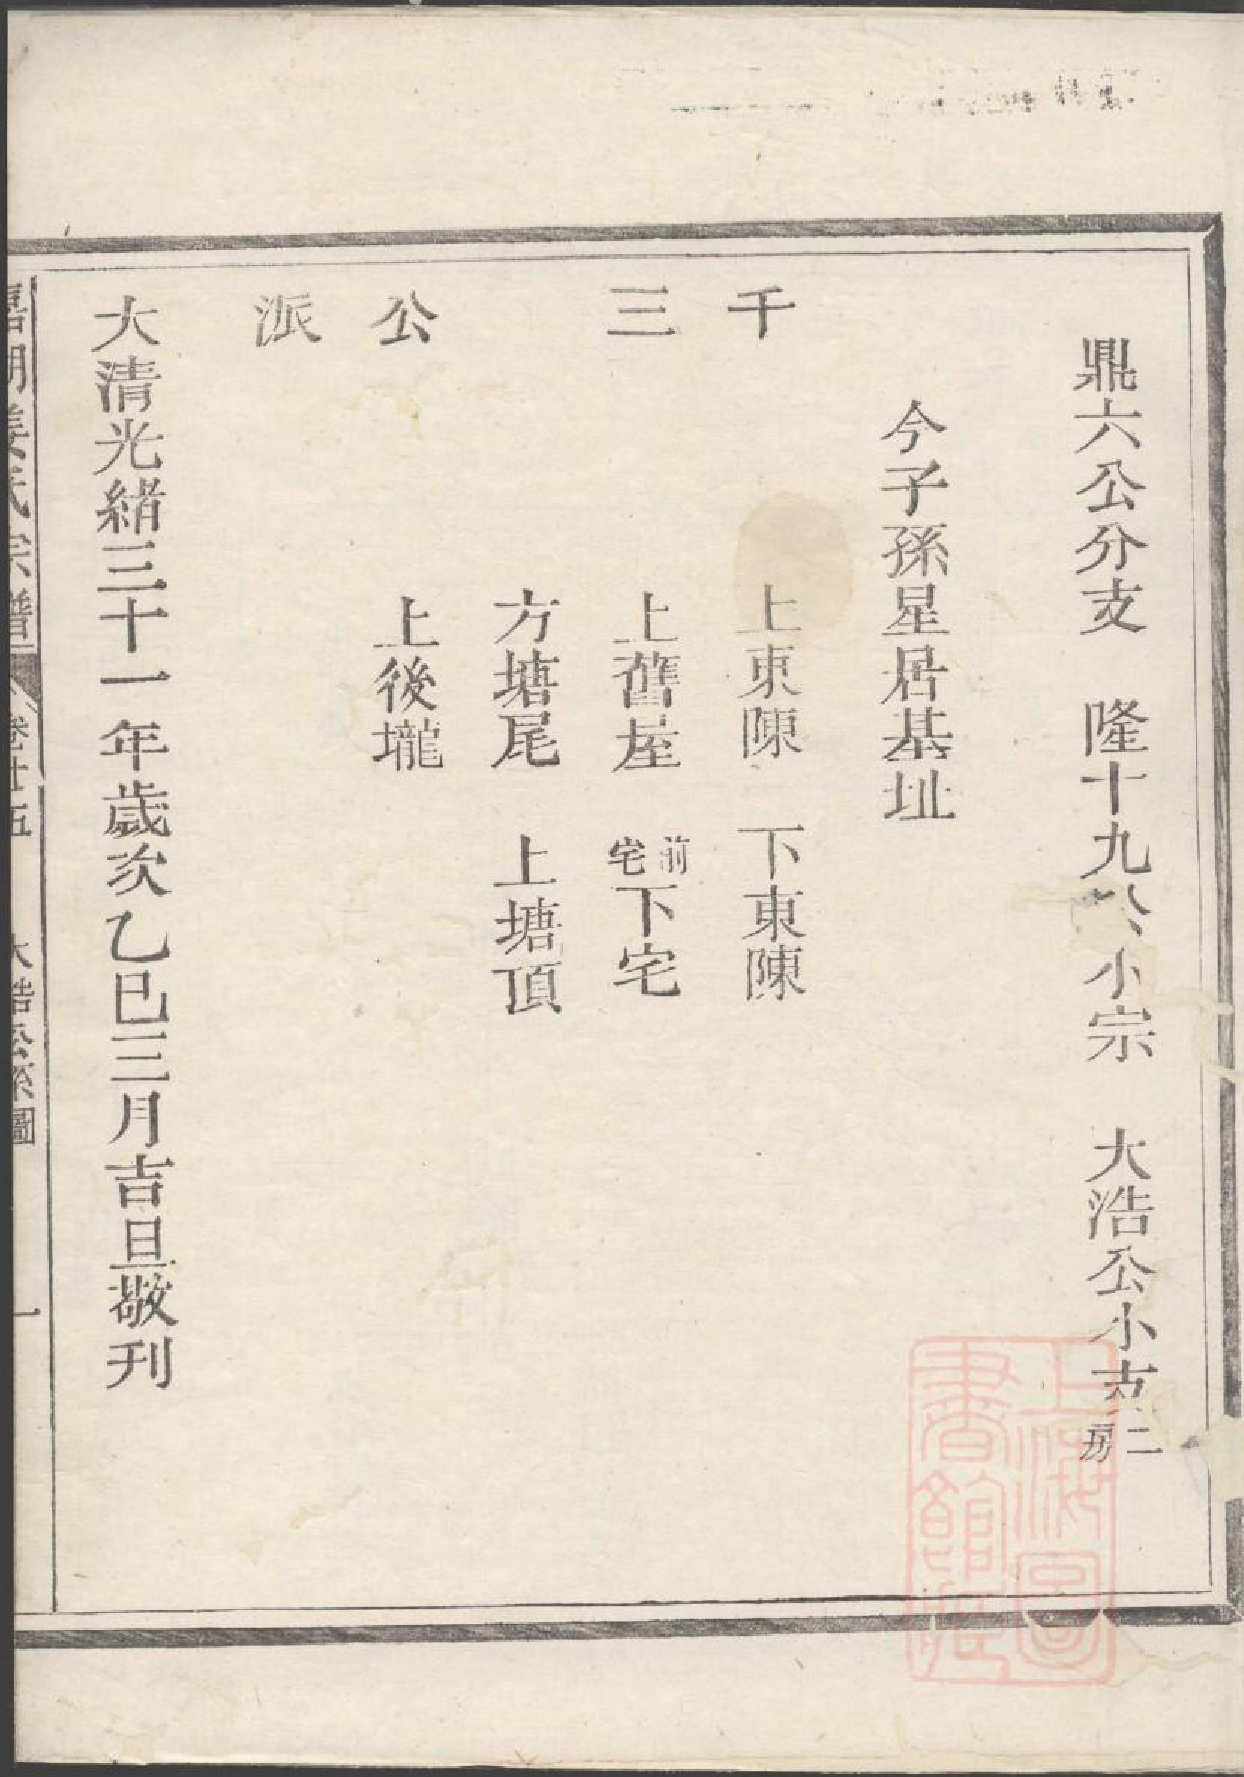 鼎六公分支　隆十九公小宗　大浩公小支二房
今子孫星居基址
千　上東陳　下東陳
三　上舊屋　前宅下宅
方塘尾　上塘頂
公　上後壠
派
大清光緒三十一年歲次乙巳三月吉旦敬刊
姜氏宗譜　卷廿五　大浩公系圖　一
上海圖書館藏